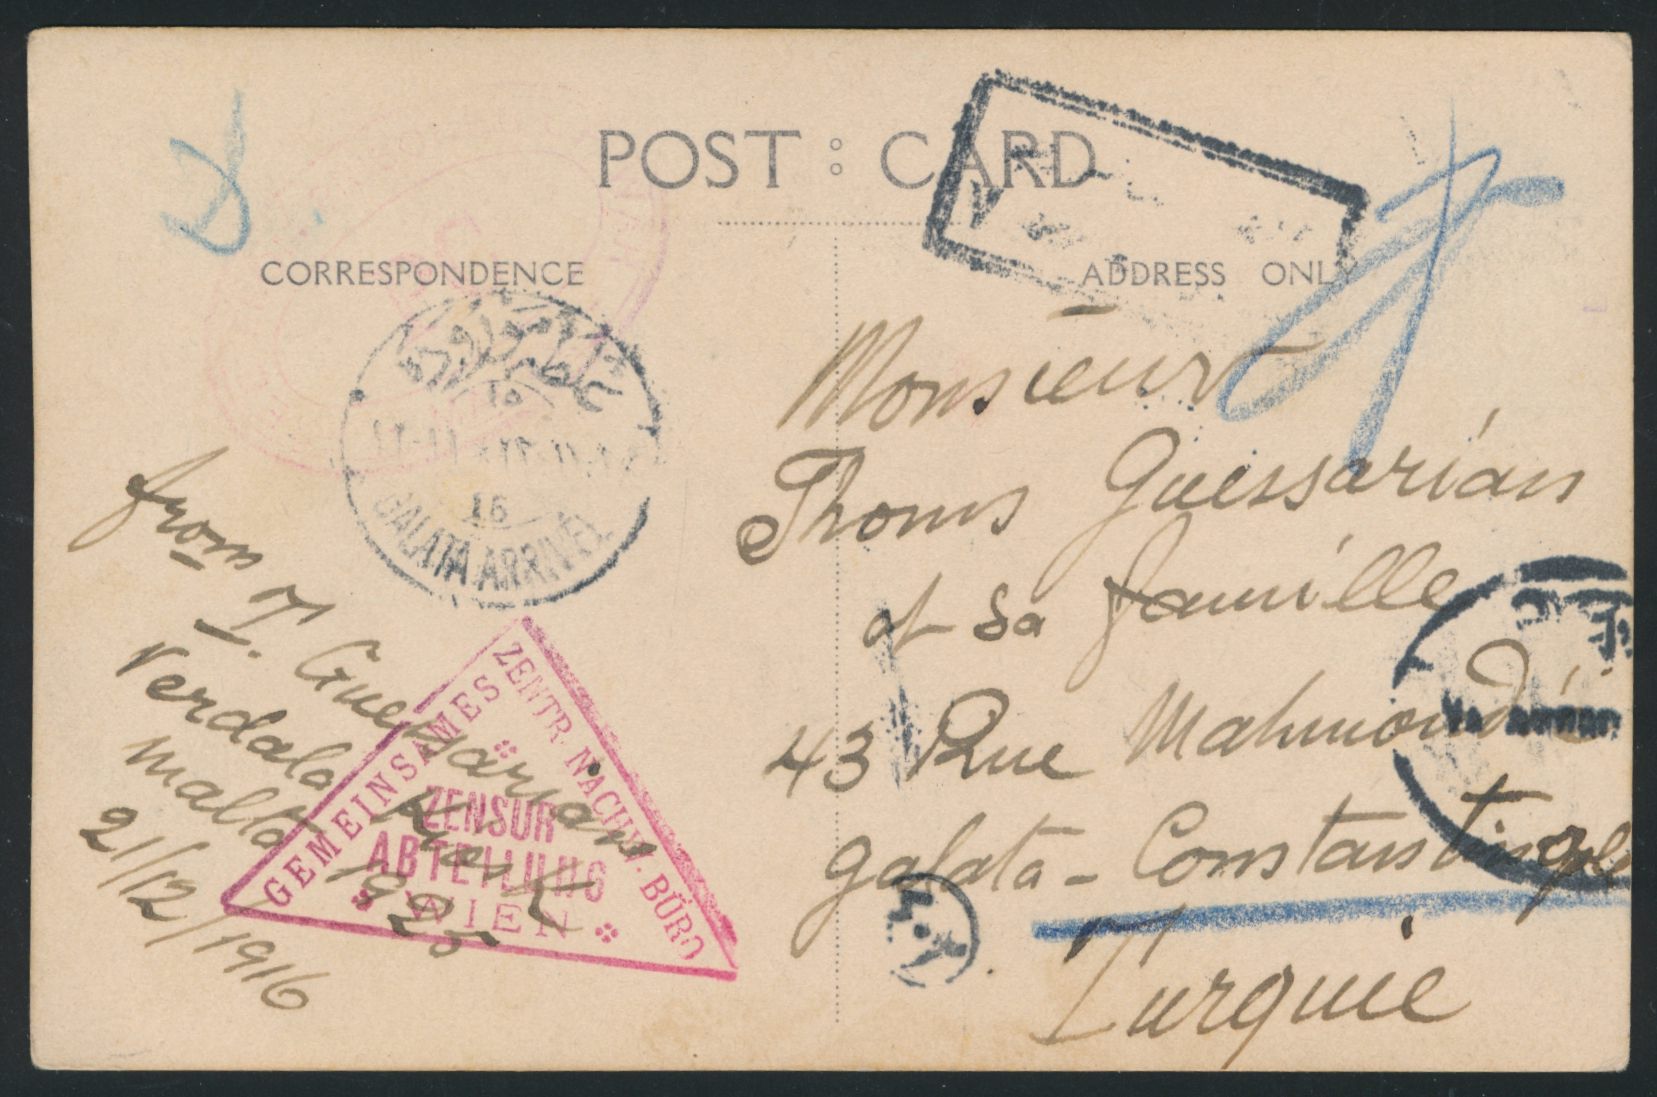 POST : CARD
CORRESPONDENCE
ADDRESS ONLY
GALATA ARRIVEE
16
from T. Guessarian
Verdala
Malta 1925
21/12/1916
GEMEINSAMES ZENTR. NACHW. BÜRO
ZENSUR
ABTEILUNG
WIEN
Monsieur
Thoms Guessarian
et sa famille
43 Rue Mahmoudié
Galata - Constantinople
Turquie